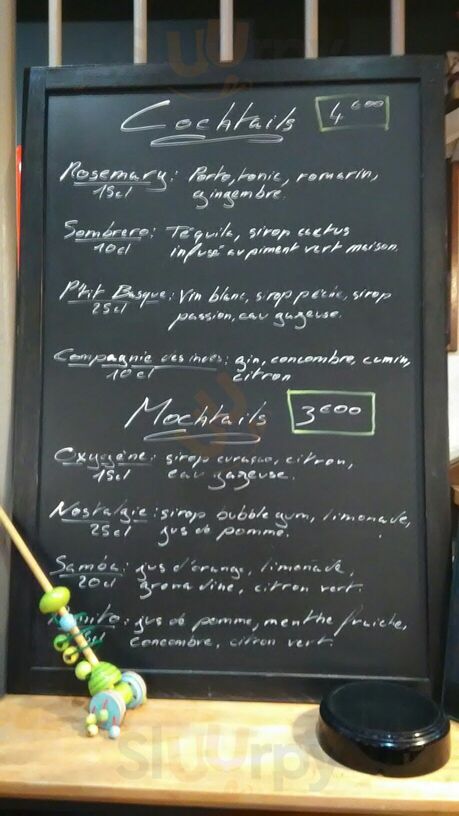 Cochtails 4€00
Rosemary: Porto, tonic, romarin,
15cl gingembre.
Sombrero: Téquila, sirop cactus
10cl infusé au piment vert maison.
P'tit Basque: Vin blanc, sirop pêche, sirop
25cl passion, eau gazeuse.
Compagnie des indes: gin, concombre, cumin,
10cl citron
Mochtails 3€00
Oxygène: sirop curaçao, citron,
15cl eau gazeuse.
Nostalgie: sirop bubble gum, limonade,
25cl jus de pomme.
Samba: jus d'orange, limonade,
20cl grenadine, citron vert.
jus de pomme, menthe fraiche,
concombre, citron vert.
Sluurpy